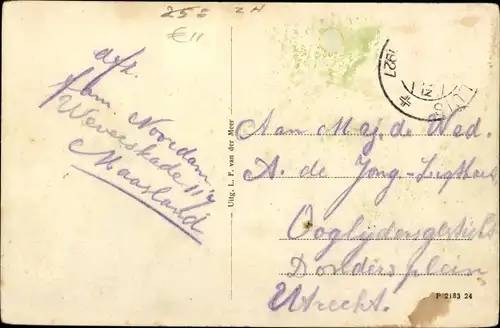 258 ZH
€11
afz.
fam. Noordam
Wevershade 117
Maasland
Uitg. L. F. van der Meer
1927
12
Aan Mej. de Wed.
A. de Jong-Ligthart
Ooglijdersgesticht
Dondersplein
Utrecht.
P 2183 24